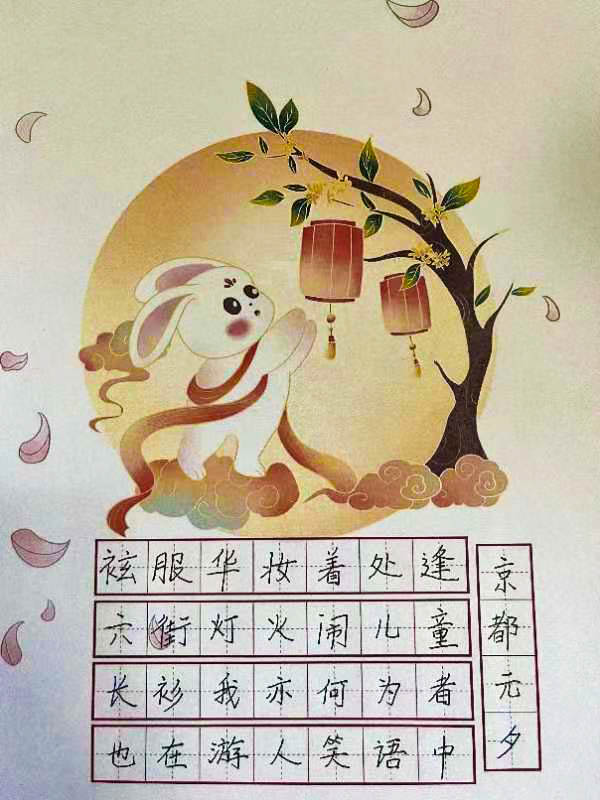 京都元夕
袨服华妆着处逢
六街灯火闹儿童
长衫我亦何为者
也在游人笑语中